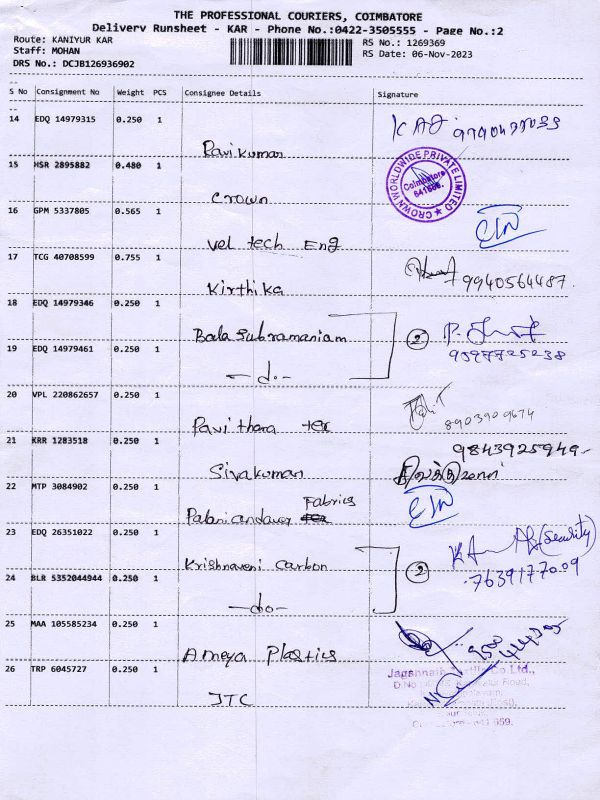 THE PROFESSIONAL COURIERS, COIMBATORE
Delivery Runsheet - KAR - Phone No.:0422-3505555 - Page No.:2
Route: KANIYUR KAR
RS No.: 1269369
Staff: MOHAN
RS Date: 06-Nov-2023
DRS No.: DCJB126936902
S No Consignment No Weight PCS Consignee Details Signature
14 EDQ 14979315 0.250 1
Ravikumar
15 HSR 2895882 0.480 1
CROWN WORLDWIDE PRIVATE LIMITED
Coimbatore
Crown
16 GPM 5337805 0.565 1
Vel tech Eng
17 TCG 40708599 0.755 1
Kirthika 9940564487.
18 EDQ 14979346 0.250 1
Balasubramaniam 2
19 EDQ 14979461 0.250 1
-do-
20 VPL 220862657 0.250 1
Pavithara tex 8903909674
21 KRR 1283518 0.250 1
9843925949-
Sivakumar
22 MTP 3084902 0.250 1
Fabrics
Palaniandavar
23 EDQ 26351022 0.250 1
Krishnaveni Carbon 2 (Security)
24 BLR 5352044944 0.250 1
-do-
25 MAA 105585234 0.250 1
Ameya Plastics
26 TRP 6045727 0.250 1
Jagannath Co.Ltd.,
JTC